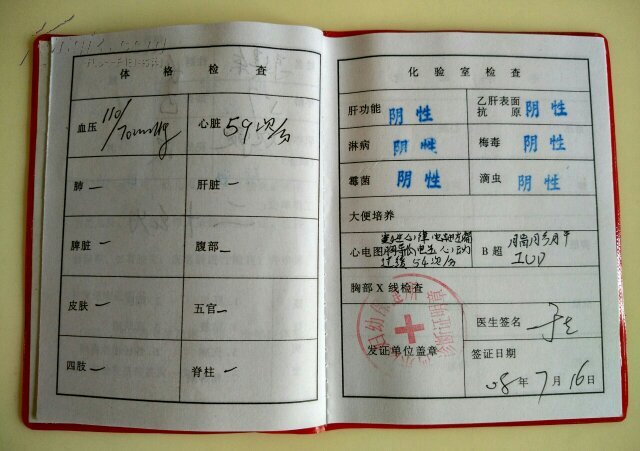 体格检查
血压 110/70mmHg 心脏 59次/分
肺 一 肝脏 一
脾脏 一 腹部 一
皮肤 一 五官 一
四肢 一 脊柱 一
化验室检查
肝功能 阴性 乙肝表面抗原 阴性
淋病 阴性 梅毒 阴性
霉菌 阴性 滴虫 阴性
大便培养
心电图 过缓54次/分 B超 IUD
胸部X线检查
医生签名
发证单位盖章 签证日期
08年7月16日